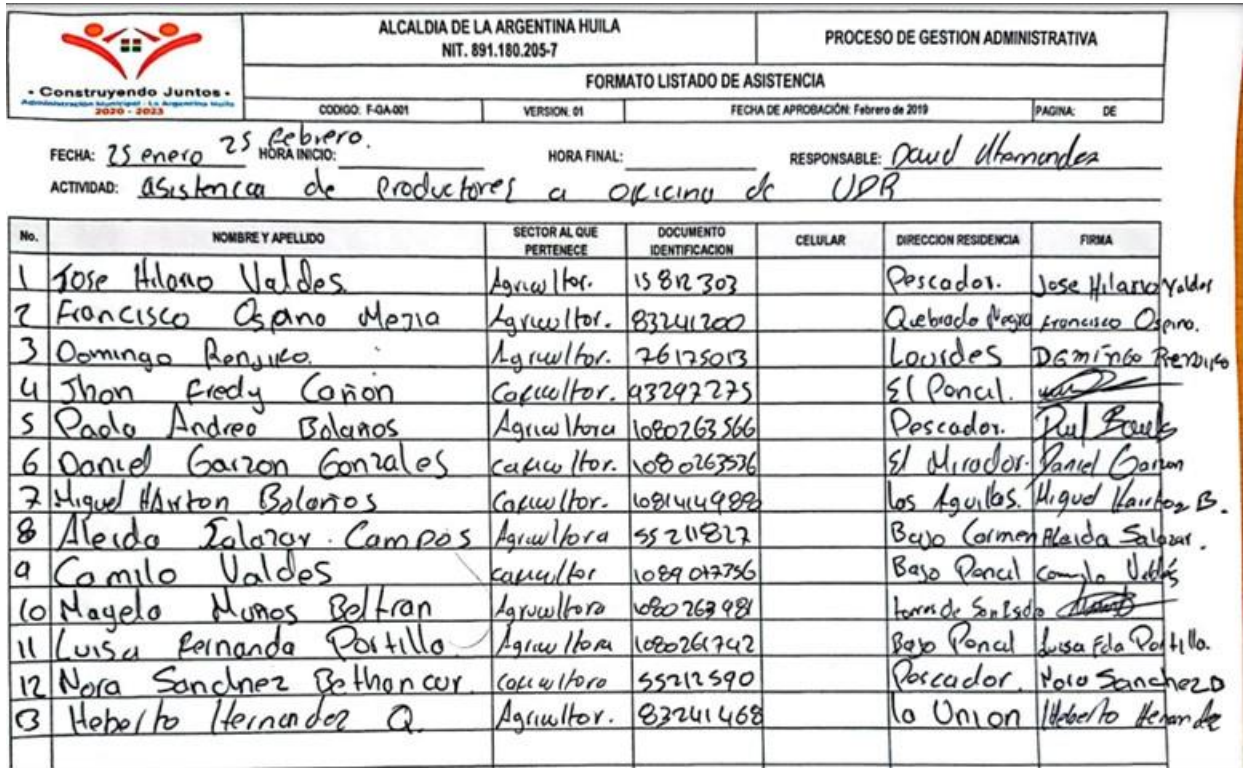 ALCALDIA DE LA ARGENTINA HUILA
NIT. 891.180.205-7
PROCESO DE GESTION ADMINISTRATIVA
FORMATO LISTADO DE ASISTENCIA
• Construyendo Juntos •
Administración Municipal - La Argentina Huila
2020 - 2023
CODIGO: F-GA-001 VERSION: 01 FECHA DE APROBACIÓN: Febrero de 2019 PAGINA: DE
FECHA: 25 enero 25 febrero. HORA INICIO: HORA FINAL: RESPONSABLE: David Hernandez
ACTIVIDAD: asistencia de Productores a oficina de UPR
No. NOMBRE Y APELLIDO SECTOR AL QUE PERTENECE DOCUMENTO IDENTIFICACION CELULAR DIRECCION RESIDENCIA FIRMA
1 Jose Hilario Valdes. Agricultor. 15812303 Pescador. Jose Hilario Valdes
2 Francisco Ospino Mejia Agricultor. 83241200 Quebrada Negra Francisco Ospino.
3 Domingo Agricultor. 76175013 Lourdes Domingo
4 Jhon Fredy Cañon Caficultor. 93297275 El Pencil.
5 Paola Andrea Bolaños Agricultora 1080263566 Pescador.
6 Daniel Garzon Gonzales Caficultor. 1080263536 El Mirador. Daniel Garzon
7 Miguel Bolaños Caficultor. 1081414988 los Aguilas. Miguel B.
8 Aleida Salazar Campos Agricultora 55211827 Bajo Carmen Aleida Salazar.
9 Camilo Valdes caficultor 1089017356 Bajo Pencil Camilo Valdés
10 Mayela Muños Beltran Agricultora 1080263981 torres de San Isidro
11 Luisa Fernanda Portillo Agricultora 1080261742 Bajo Pencil Luisa Fda Portillo.
12 Nora Sanchez Bethancur. Caficultora 55212590 Pescador. Nora Sanchez B
13 Heberto Hernandez Q. Agricultor. 83241468 la Union Heberto Hernandez